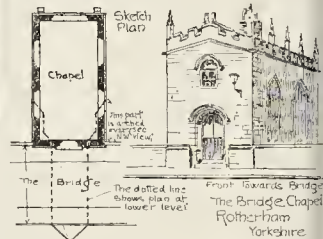 Sketch
Plan
Chapel
This part
is arched
over, see
"N.W. view"
The Bridge
The dotted line
shows plan at
lower level
Front Towards Bridge
The Bridge Chapel
Rotherham
Yorkshire